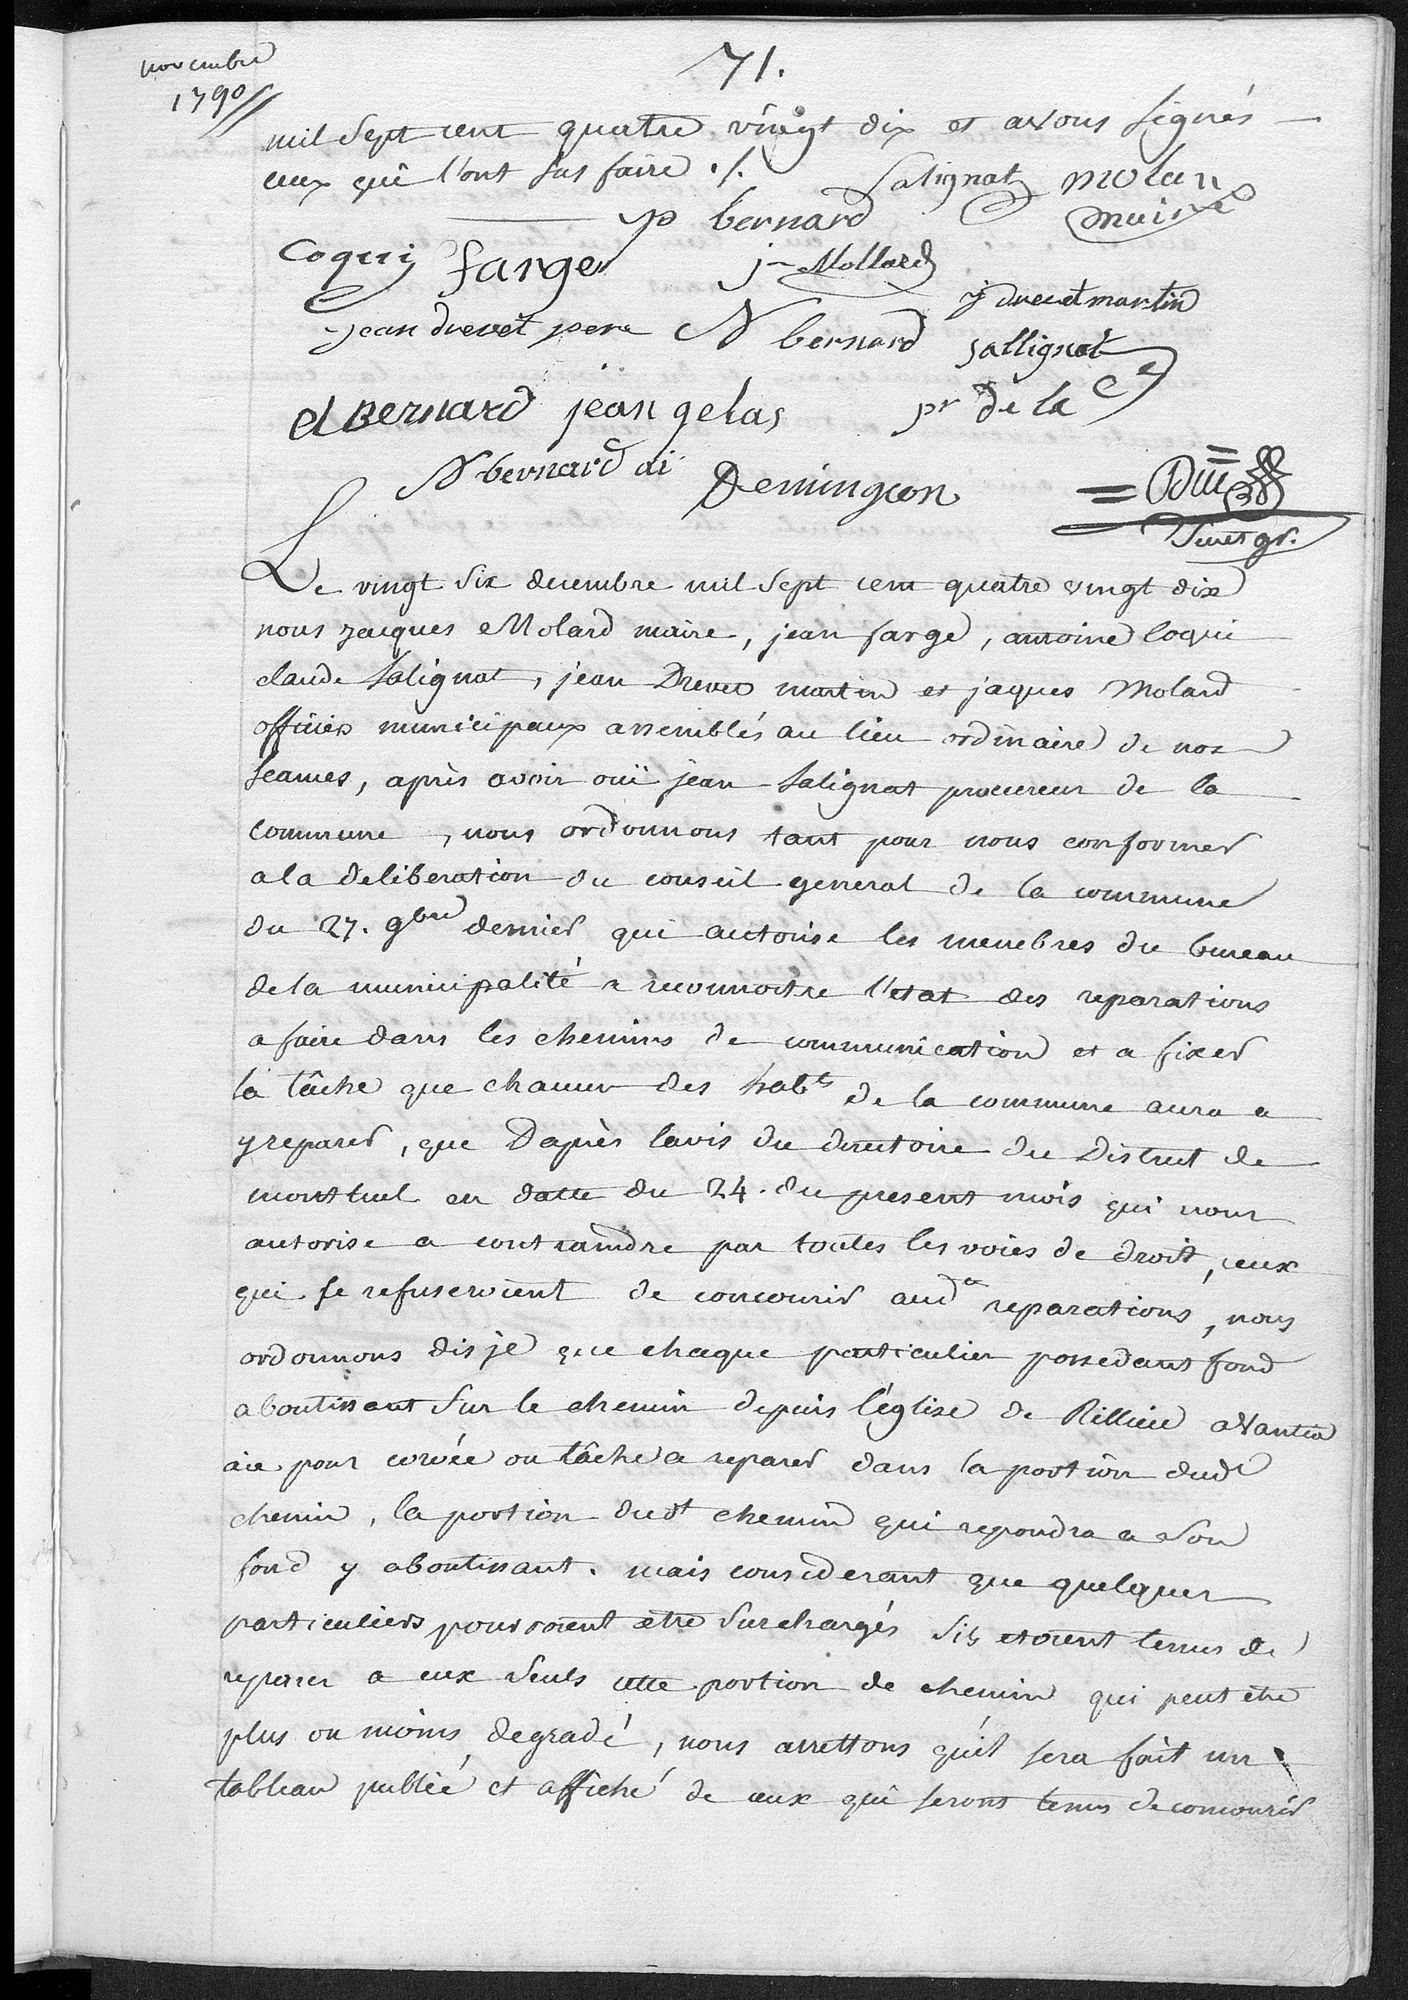 novembre
1790
71.
mil Sept cent quatre vingt dix et avons signés
ceux qui l'ont sus faire ./.
Salignat molar
maire
p bernard
Coqui farge j Mollard
j drevet martin
jean drevet pere N bernard sallignat
C Bernard jean gelas pr de la Ce
N bernard ai Demingeon
Le vingt Six decembre mil Sept cent quatre vingt dix
nous jacques Molard maire, jean farge, antoine Coqui
claude Salignat, jean Drevet martin et jaques Molard
officiers municipaux assemblés au lieu ordinaire de nos
seances, après avoir ouï jean Salignat procureur de la
commune, nous ordonnons tant pour nous conformer
a la deliberation du conseil general de la commune
du 27. 9bre dernier qui autorise les membres du bureau
de la municipalité a reconnoitre l'etat des reparations
a faire dans les chemins de communication et a fixer
la tâche que chacun des habts de la commune aura a
y reparer, que D'après l'avis du directoire du District de
montluel en datte du 24. du present mois qui nous
autorise a contraindre par toutes les voies de droit, ceux
qui se refuseroient de concourir aud. reparations, nous
ordonnons dis je que chaque particulier possedant fond
aboutissant Sur le chemin depuis l'église de Rillieu a Vantia
aie pour corvée ou tâche a reparer dans la portion dudt
chemin, la portion dudt chemin qui repondra a Son
fond y aboutissant. mais considerant que quelques
particuliers pourroient etre Surchargés Sils etoient tenus de
reparer a eux Seuls cette portion de chemin qui peut etre
plus ou moins degradé, nous arrettons qu'il sera fait un
tableau publié et affiché de ceux qui seront tenus de concourir